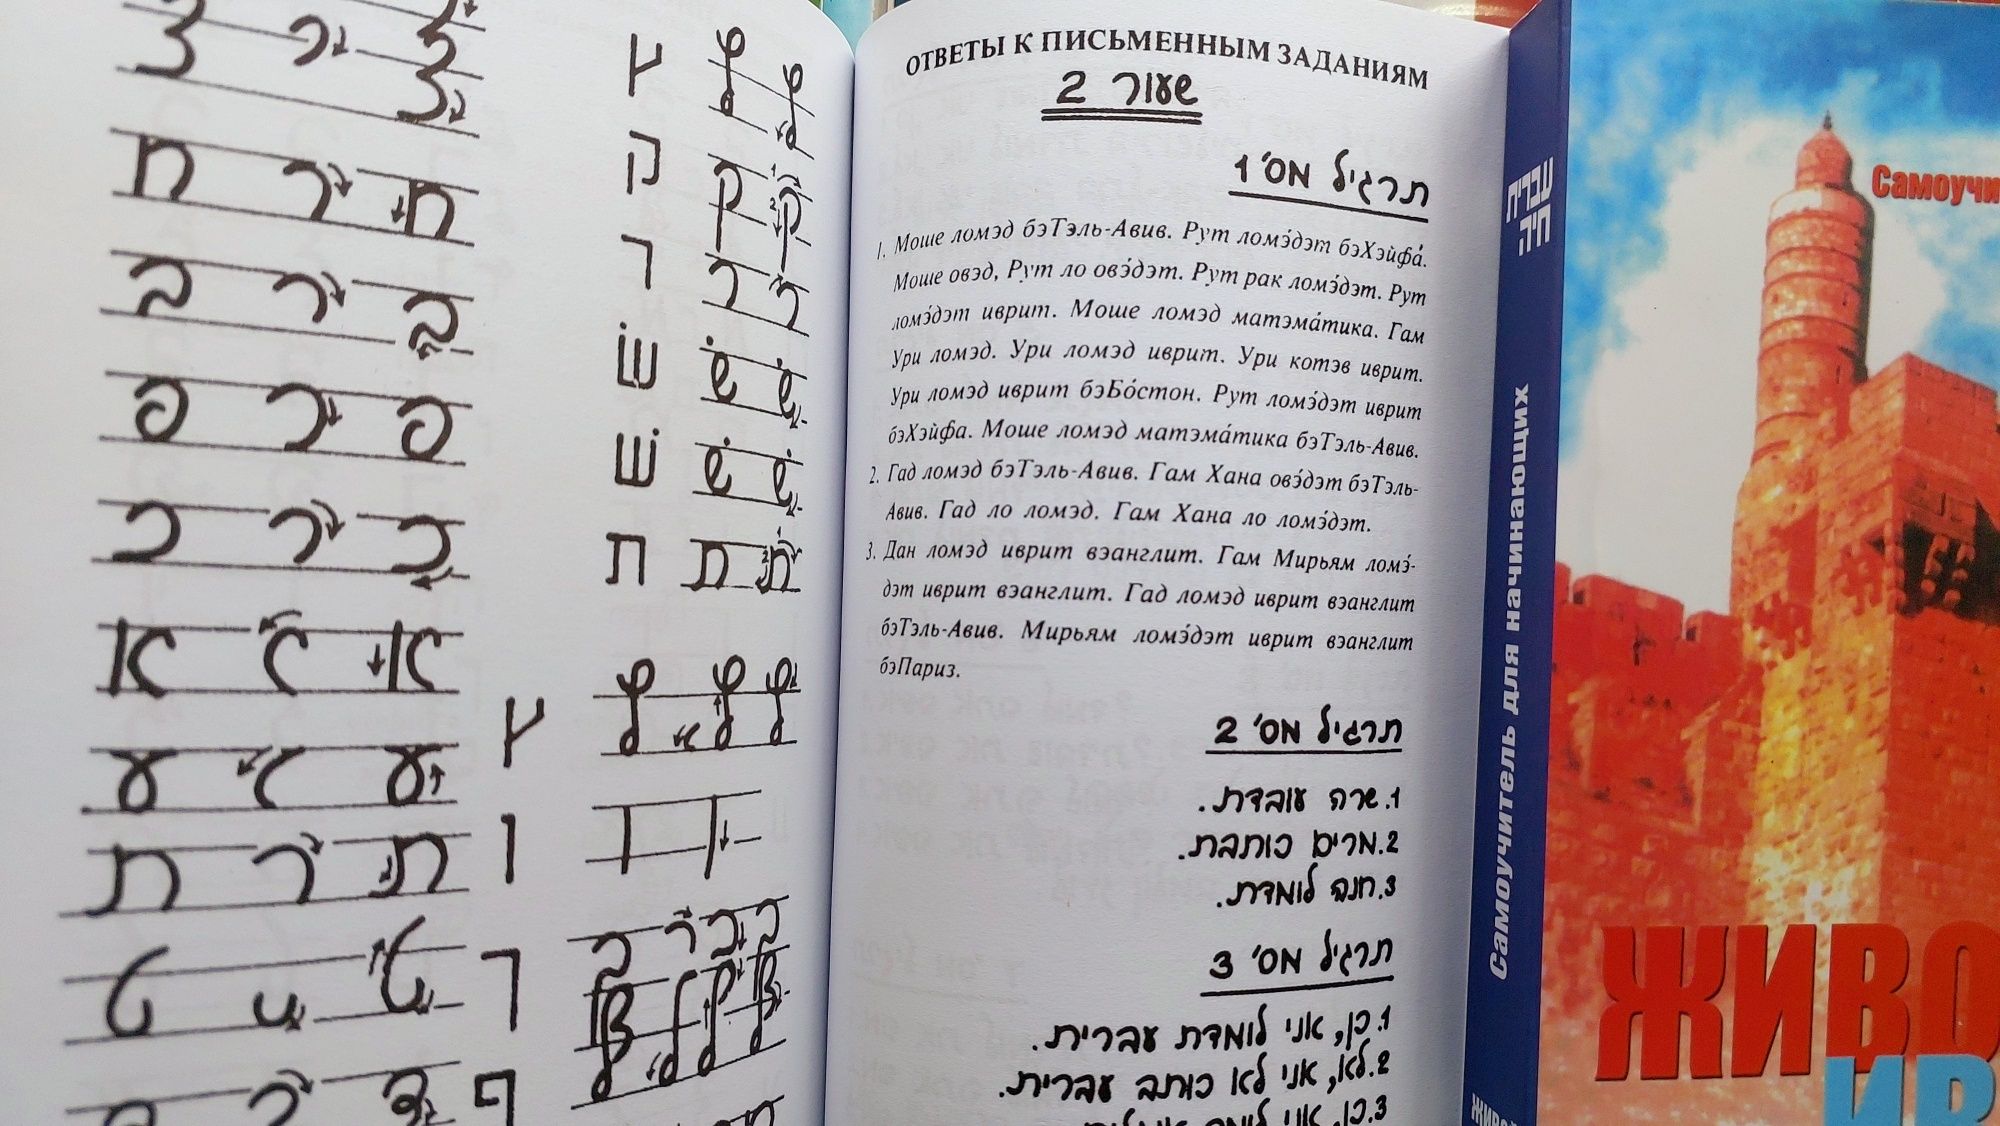 ץ
ק
ר
שׂ
שׁ
ת
ץ
ו
ך
ף
ОТВЕТЫ К ПИСЬМЕННЫМ ЗАДАНИЯМ
שעור 2
תרגיל מס' 1
1. Моше ломэд бэТэль-Авив. Рут ломэ́дэт бэХэйфа́.
Моше овэд, Рут ло овэ́дэт. Рут рак ломэ́дэт. Рут
ломэ́дэт иврит. Моше ломэд матэма́тика. Гам
Ури ломэд. Ури ломэд иврит. Ури котэв иврит.
Ури ломэд иврит бэБо́стон. Рут ломэ́дэт иврит
бэХэйфа. Моше ломэд матэма́тика бэТэль-Авив.
2. Гад ломэд бэТэль-Авив. Гам Хана овэ́дэт бэТэль-
Авив. Гад ло ломэд. Гам Хана ло ломэ́дэт.
3. Дан ломэд иврит вэанглит. Гам Мирьям ломэ́-
дэт иврит вэанглит. Гад ломэд иврит вэанглит
бэТэль-Авив. Мирьям ломэ́дэт иврит вэанглит
бэПариз.
תרגיל מס' 2
1. שרה עובדת.
2. מרים כותבת.
3. חנה לומדת.
תרגיל מס' 3
1. כן, אני לומדת עברית.
2. לא, אני לא כותב עברית.
3. כן, אני לומד
עברית
חיה
Самоучитель для начинающих
ЖИВО
Самоучи
ЖИВО
ИВ